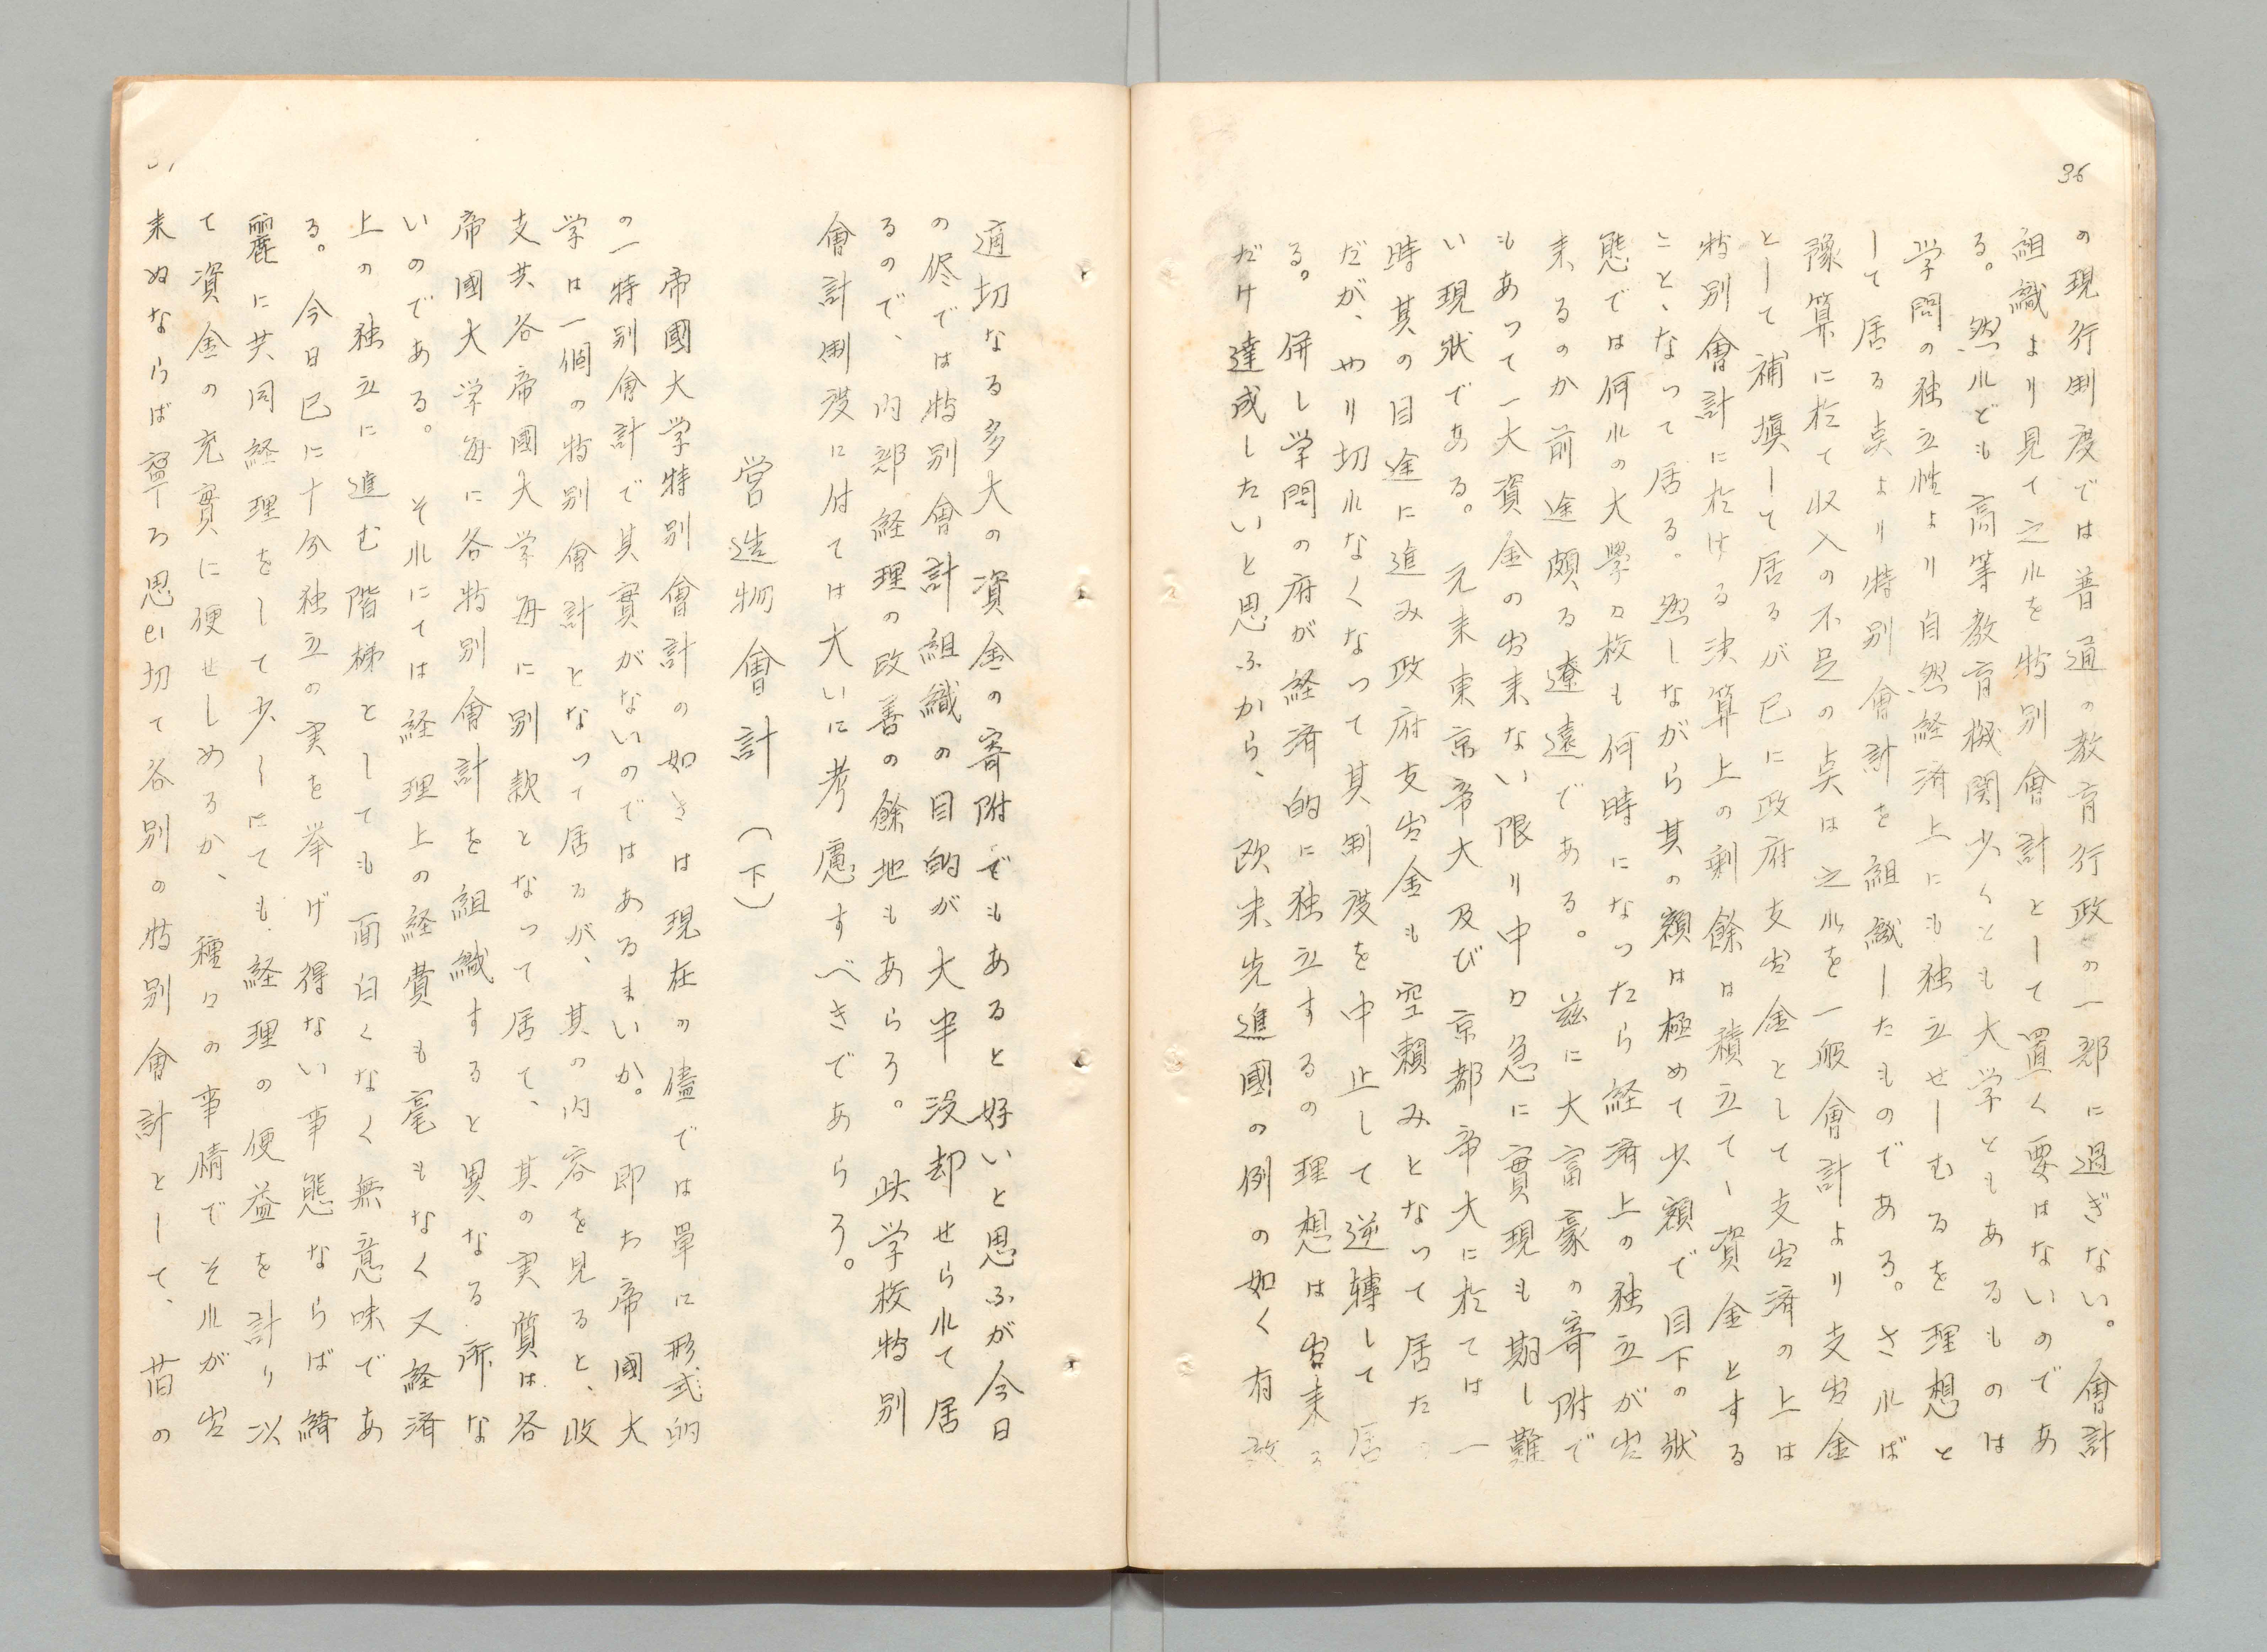 36
の現行制度では普通の教育行政の一部に過ぎない。會計
組織より見て之れを特別會計として置く要はないのであ
る。然れども高等教育機関少くとも大学ともあるものは
学問の独立性より自然経済上にも独立せしむるを理想と
して居る点より特別會計を組織したものである。されば
豫算に於て収入の不足の点は之れを一般會計より支出金
として補填して居るが已に政府支出金として支出済の上は
特別會計に於ける決算上の剰餘は積立てゝ資金とする
ことゝなって居る。然しながら其の額は極めて少額で目下の狀
態では何れの大學々校も何時になったら経済上の独立が出
来るのか前途頗る遼遠である。茲に大富豪の寄附で
もあって一大資金の出来ない限り中々急に實現も期し難
い現狀である。元来東京帝大及び京都帝大に於ては一
時其の目途に進み政府支出金も空頼みとなって居た
だが、やり切れなくなって其制度を中止して逆轉して居
る。併し学問の府が経済的に独立するの理想は出来る
だけ達成したいと思ふから、欧米先進國の例の如く有数
適切なる多大の資金の寄附でもあると好いと思ふが今日
の侭では特別會計組織の目的が大半没却せられて居
るので、内部経理の改善の餘地もあらう。此学校特別
會計制度に付ては大いに考慮すべきであらう。
営造物會計（下）
帝國大学特別會計の如きは現在の儘では單に形式的
の一特別會計で其實がないのではあるまいか。即ち帝國大
学は一個の特別會計となって居るが、其の内容を見ると、收
支共各帝國大学毎に別款となって居て、其の実質は各
帝國大学毎に各特別會計を組織すると異なる所な
いのである。それにては経理上の経費も毫もなく又経済
上の独立に進む階梯としても面白くなく無意味であ
る。今日已に十分独立の実を挙げ得ない事態ならば綺
麗に共同経理をして少しにても経理の便益を計り以
て資金の充實に便せしめるか、種々の事情でそれが出
来ぬならば寧ろ思ひ切て各別の特別會計として、昔の